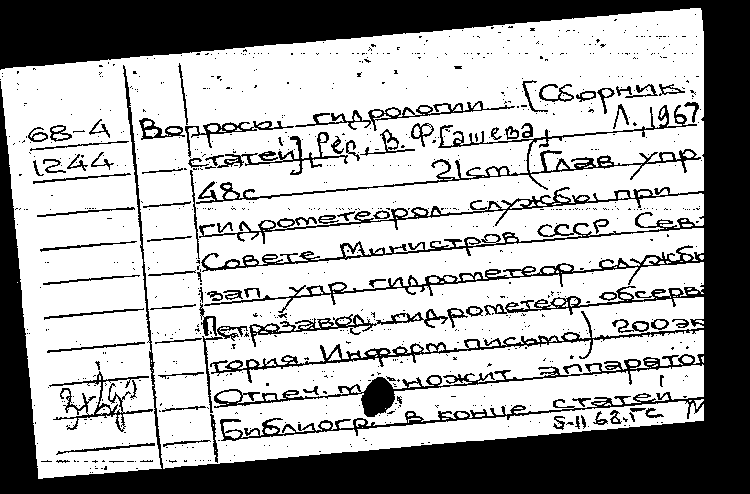 68-4 Вопросы гидрологии [Сборник
1244 статей], Ред. В. Ф. Гашева, Л., 1967.
48с 21cm (Глав. упр.
гидрометеорол. службы при
Совете Министров СССР. Сев.-
зап. упр. гидрометеор. службы
Петрозавод. гидрометеор. обсерва
тория. Информ. письмо). 200 эк
Отпеч. множит. аппарато
Библиогр. в конце статей
5-II 68. ГС